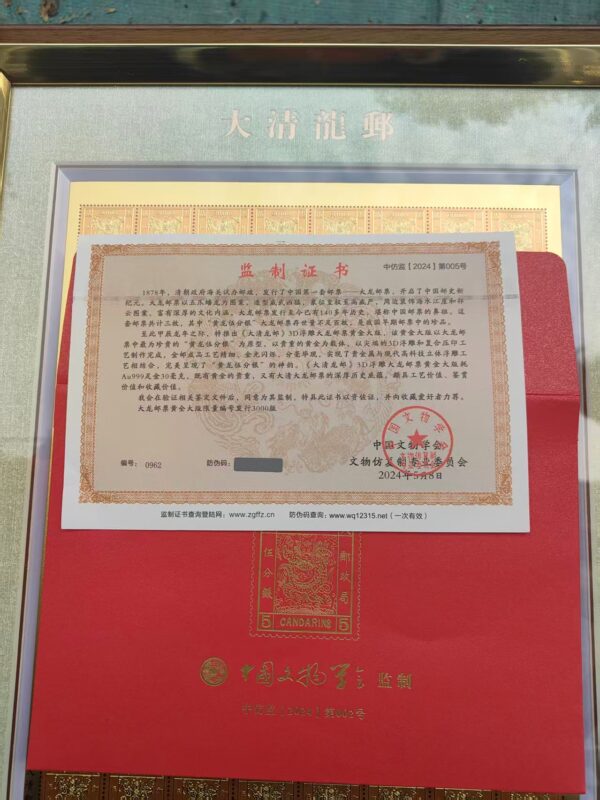 大清龍郵
监制证书
中仿监【2024】第005号
1878年，清朝政府海关试办邮政，发行了中国第一套邮票——大龙邮票，开启了中国邮史新
纪元。大龙邮票以五爪蟠龙为图案，造型威武凶猛，象征皇权至高威严，周边装饰海水江崖和祥
云图案，富有深厚的文化内涵。大龙邮票发行至今已有140多年历史，堪称中国邮票的鼻祖。这
套邮票共计三枚，其中“黄龙伍分银”大龙邮票存世量不足百枚，是我国早期邮票中的珍品。
至此甲辰龙年之际，特推出《大清龙邮》3D浮雕大龙邮票黄金大版，该黄金大版以大龙邮
票中最为珍贵的“黄龙伍分银”为原型，以贵重的黄金为载体，以尖端的3D浮雕和复合压印工
艺制作完成，金邮成品工艺精细、金光闪烁、分毫毕现，实现了贵金属与现代高科技立体浮雕工
艺相结合，完美呈现了“黄龙伍分银”的神韵。《大清龙邮》3D浮雕大龙邮票黄金大版纯
Au999足金30毫克，既有黄金的贵重，又有大清大龙邮票的深厚历史底蕴，颇具工艺价值、鉴赏
价值和收藏价值。
我会在验证相关鉴定文件后，同意为其监制，特具此证书以资佐证，并向收藏爱好者力荐。
大龙邮票黄金大版限量编号发行3000版
中国文物学会
文物仿复制专业委员会
2024年5月8日
编号： 0962
防伪码：
监制证书查询登陆网：www.zgffz.cn 防伪码查询：www.wq12315.net（一次有效）
伍分銀
郵政局
5 CANDARINS 5
中国文物学会 监制
中仿监【2024】第002号